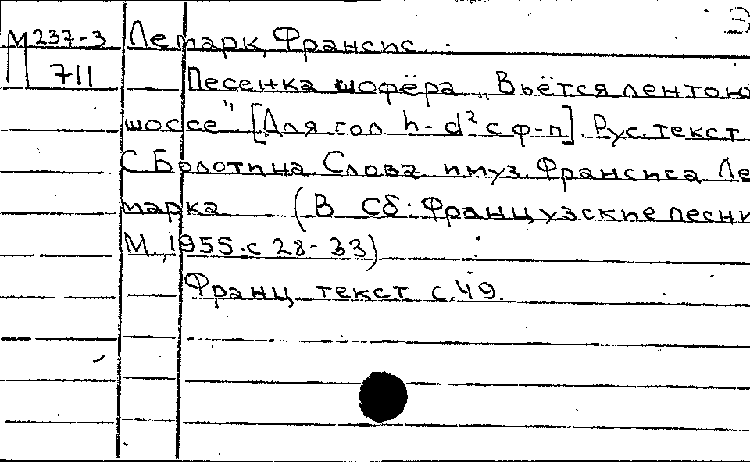 Э
М237-3 Лемарк, Франсис.
711 Песенка шофёра „Вьётся лентою
шоссе" [Для гол h-d² с ф-п]. Рус. текст
С. Болотина Слова и муз. Франсиса Ле
марка (В сб: Французские песни
М, 1955. с 28-33)
Франц. текст с. 49.